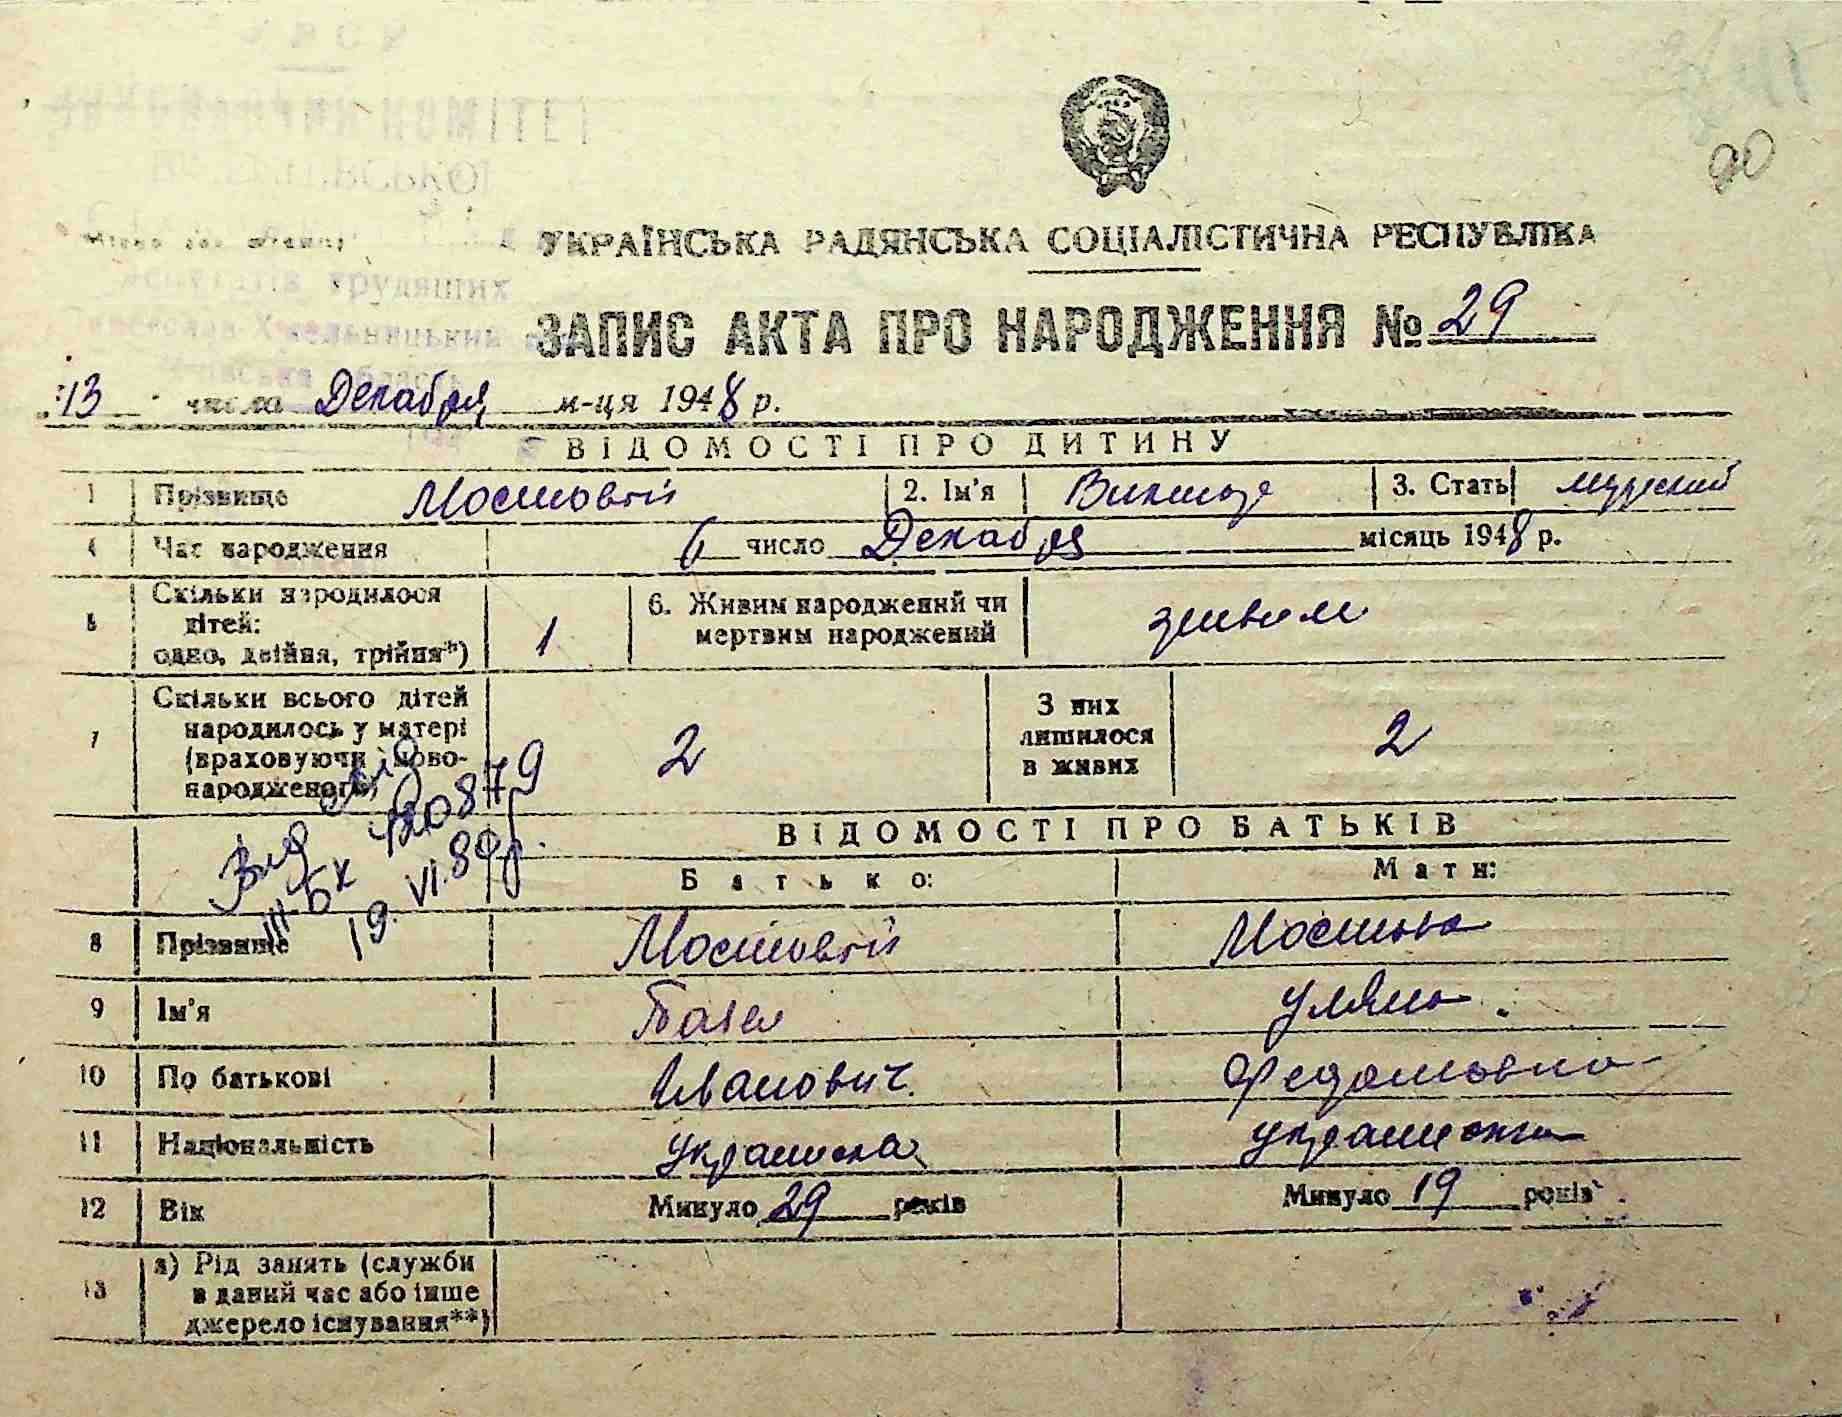 90
УКРАЇНСЬКА РАДЯНСЬКА СОЦІАЛІСТИЧНА РЕСПУБЛІКА
ЗАПИС АКТА ПРО НАРОДЖЕННЯ № 29
"13 числа Декабря м-ця 1948 р.
ВІДОМОСТІ ПРО ДИТИНУ
1 Прізвище Мостовой 2. Ім'я Виктор 3. Стать мужской
4 Час народження 6 число Декабря місяць 1948 р.
5 Скільки народилося дітей: одно, двійня, трійня*) 1 6. Живим народжений чи мертвим народжений живым
7 Скільки всього дітей народилось у матері (враховуючи ново-народженого) 2 З них лишилося в живих 2
III БК 420879
19.VI.89р.
ВІДОМОСТІ ПРО БАТЬКІВ
Батько: Мати:
8 Прізвище Мостовой Мостова
9 Ім'я Павел Уляна
10 По батькові Иванович Федотовна
11 Національність украинец украинка
12 Вік Минуло 29 років Минуло 19 років
13 а) Рід занять (служби в даний час або інше джерело існування**)